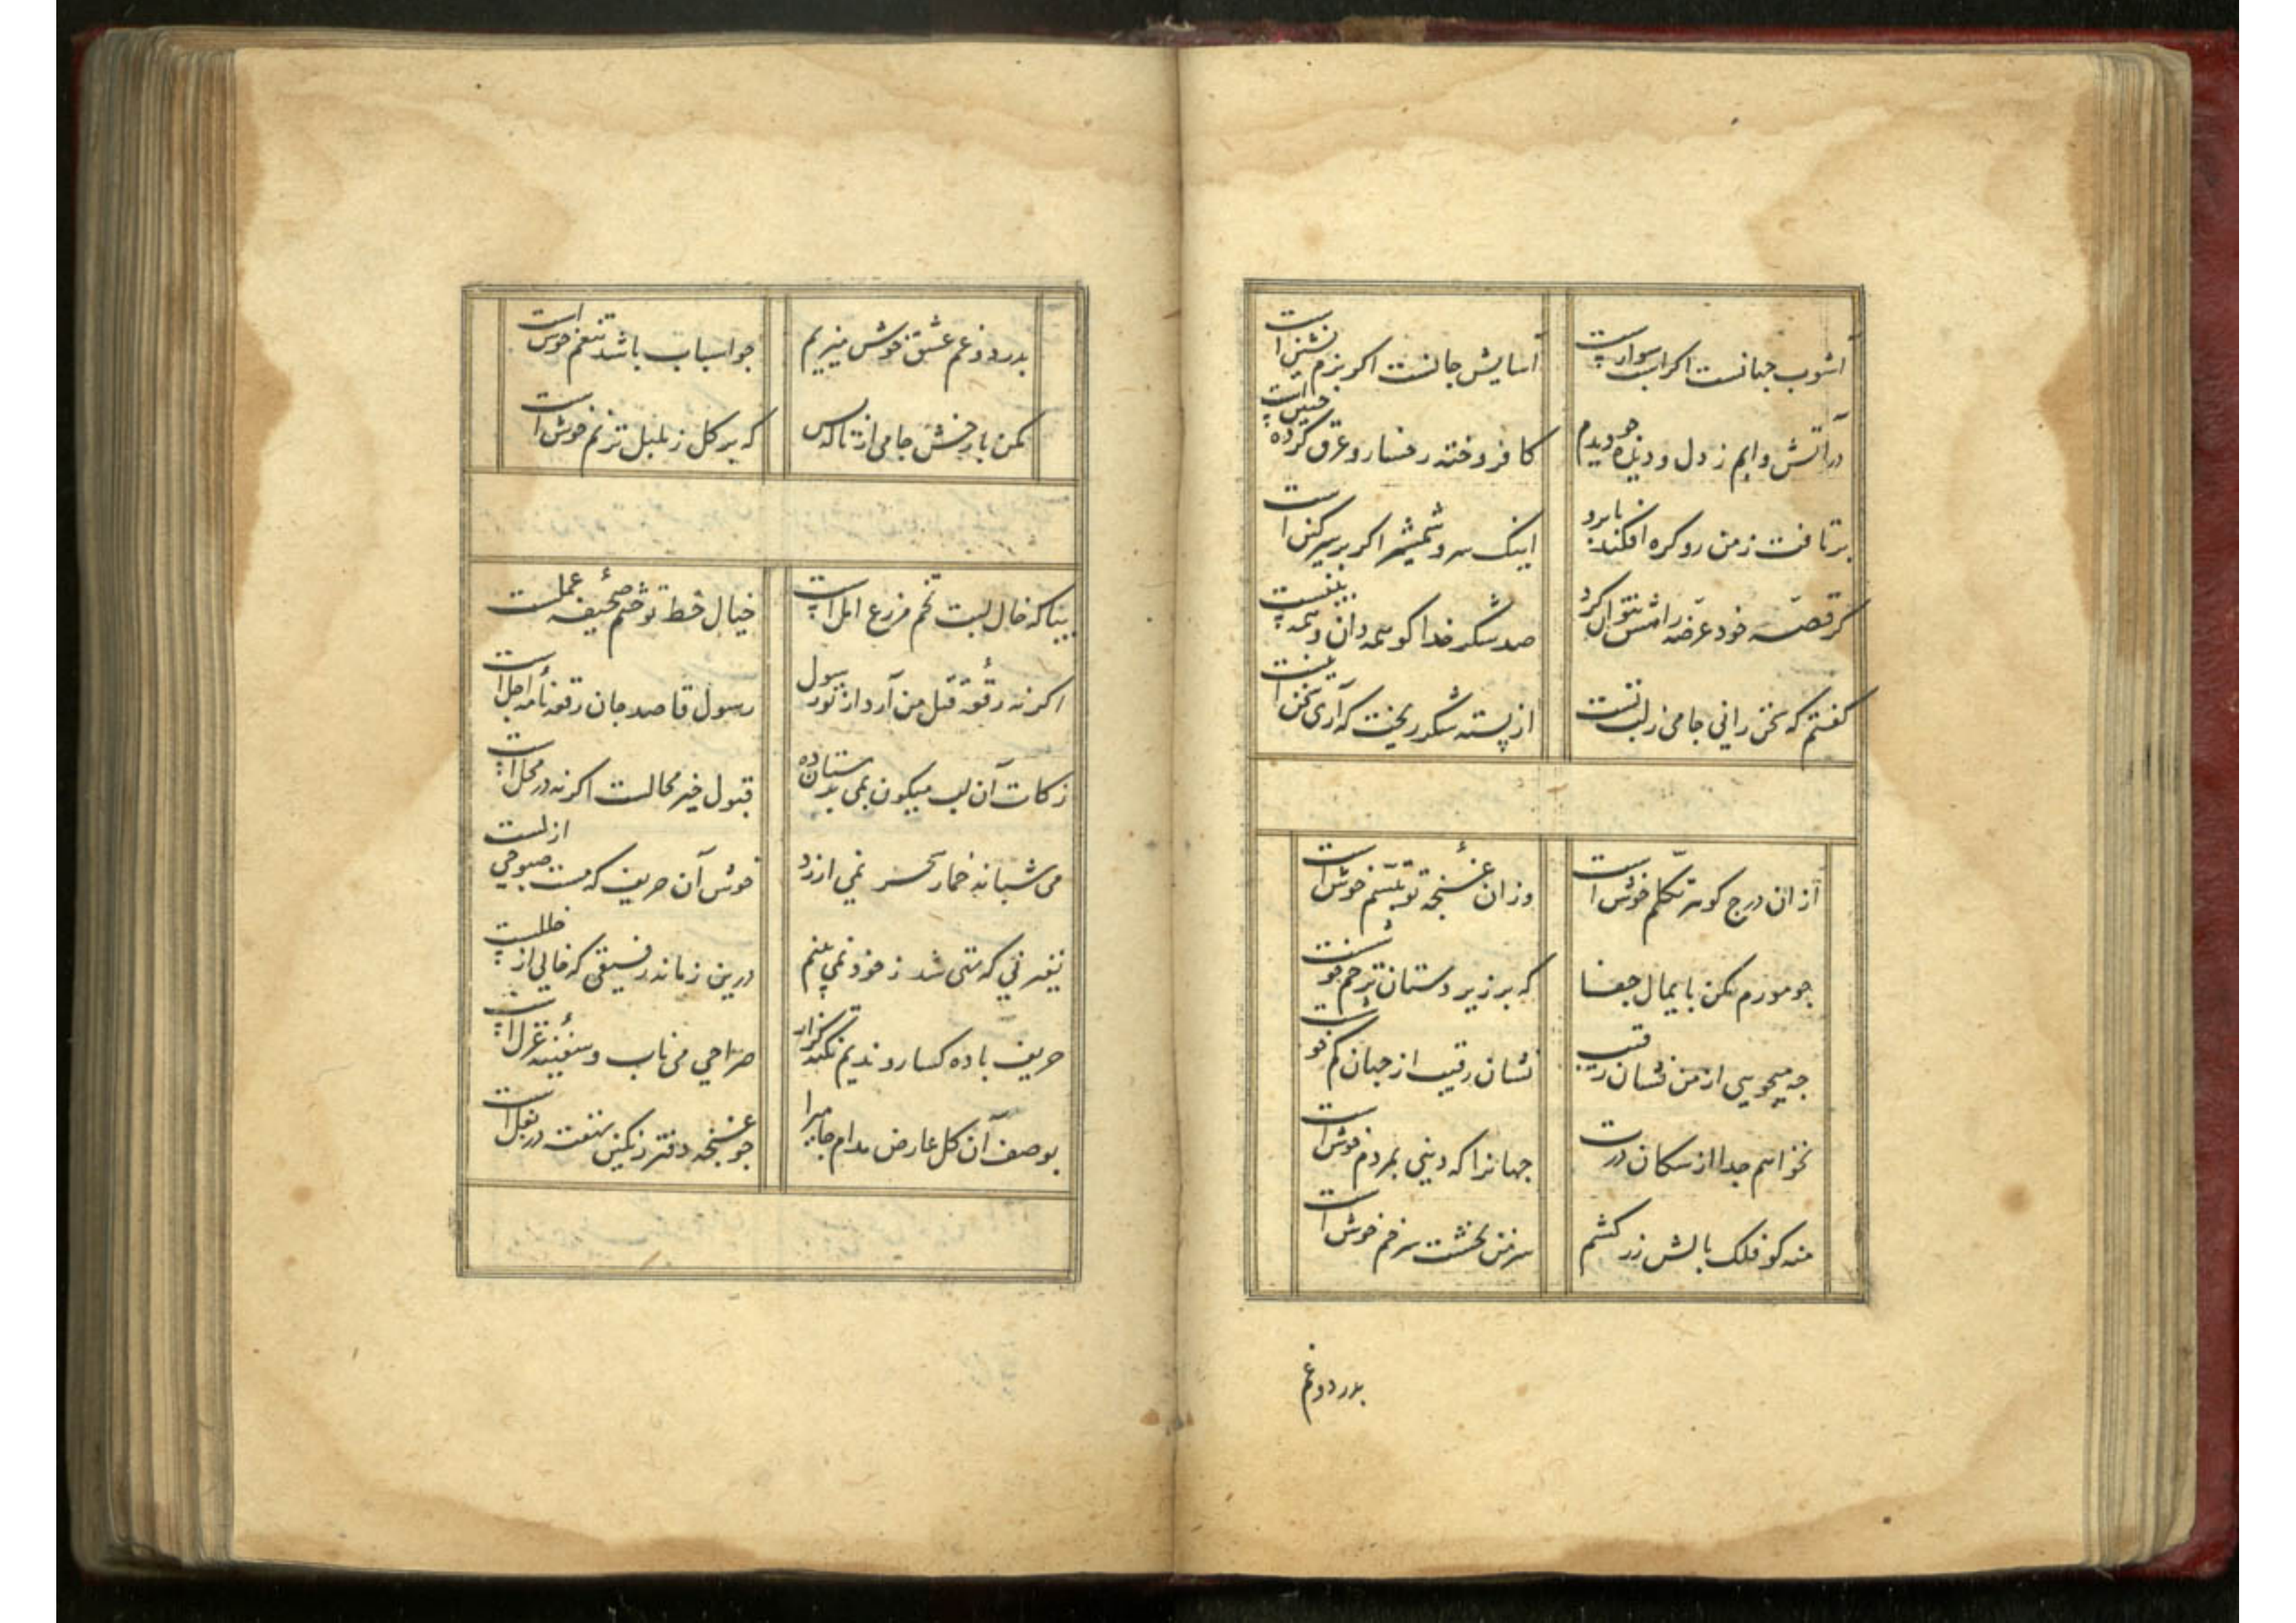 آشوب جهانست اگر اسب سوارست آسایش جانست اگر بزم نشین است
در آتش و آبم ز دل و دیده چو دیدم کافروخته رخسار و عرق کرده جبین است
برتافت ز من رو گره افکند بابرو اینک سر و شمشیر اگر بر سر کین است
گر قصه خود عرضه را مش نتوان کرد صد شکر خدا کو همه دان و همه بین است
گفتم که سخن رانی جامی ز لب تست از پسته شکر ریخت که آری سخن این است
از ان درج گوهر تکلم خوش است وز ان غنچه تو تبسم خوش است
چو مورم مکن پایمال جفا که بر زیر دستان ترحم خوش است
چه میجویی از من نشان رقیب نشان رقیب از جهان گم خوش است
نخواهم جدا از سگان درت جهانرا که دینی بمردم خوش است
منه کو فلک بالش زر کشم سر من بخشت سر خم خوش است
بدرد و غم
بدرد و غم عشق خوش میزیم چو اسباب باشد تنعم خوش است
مکن با رخش جامی از ناله بس که بر گل ز بلبل ترنم خوش است
بیا که خال لبت تخم مزرع امل است خیال خط تو ختم صحیفه عملست
اگر نه رقعه قتل من آرد از تو رسول رسول قاصد جان رقعه نامه اجل است
زکات آن لب میگون بمی پرستان ده قبول خیر محالست اگر نه در محل است
می شبانه خمار سحر نمی ارزد خوش آن حریف که مست صبوحی ازلست
نیم فنی که متنی شد ز خود نمی بینم درین زمانه رفیقی که خالی از خللست
حریف باده گسار و ندیم نکته گزار صراحی می ناب و سفینه غزل است
بوصف آن گل عارض مدام جامی را چو غنچه دفتر رنگین نهفته در بغل است